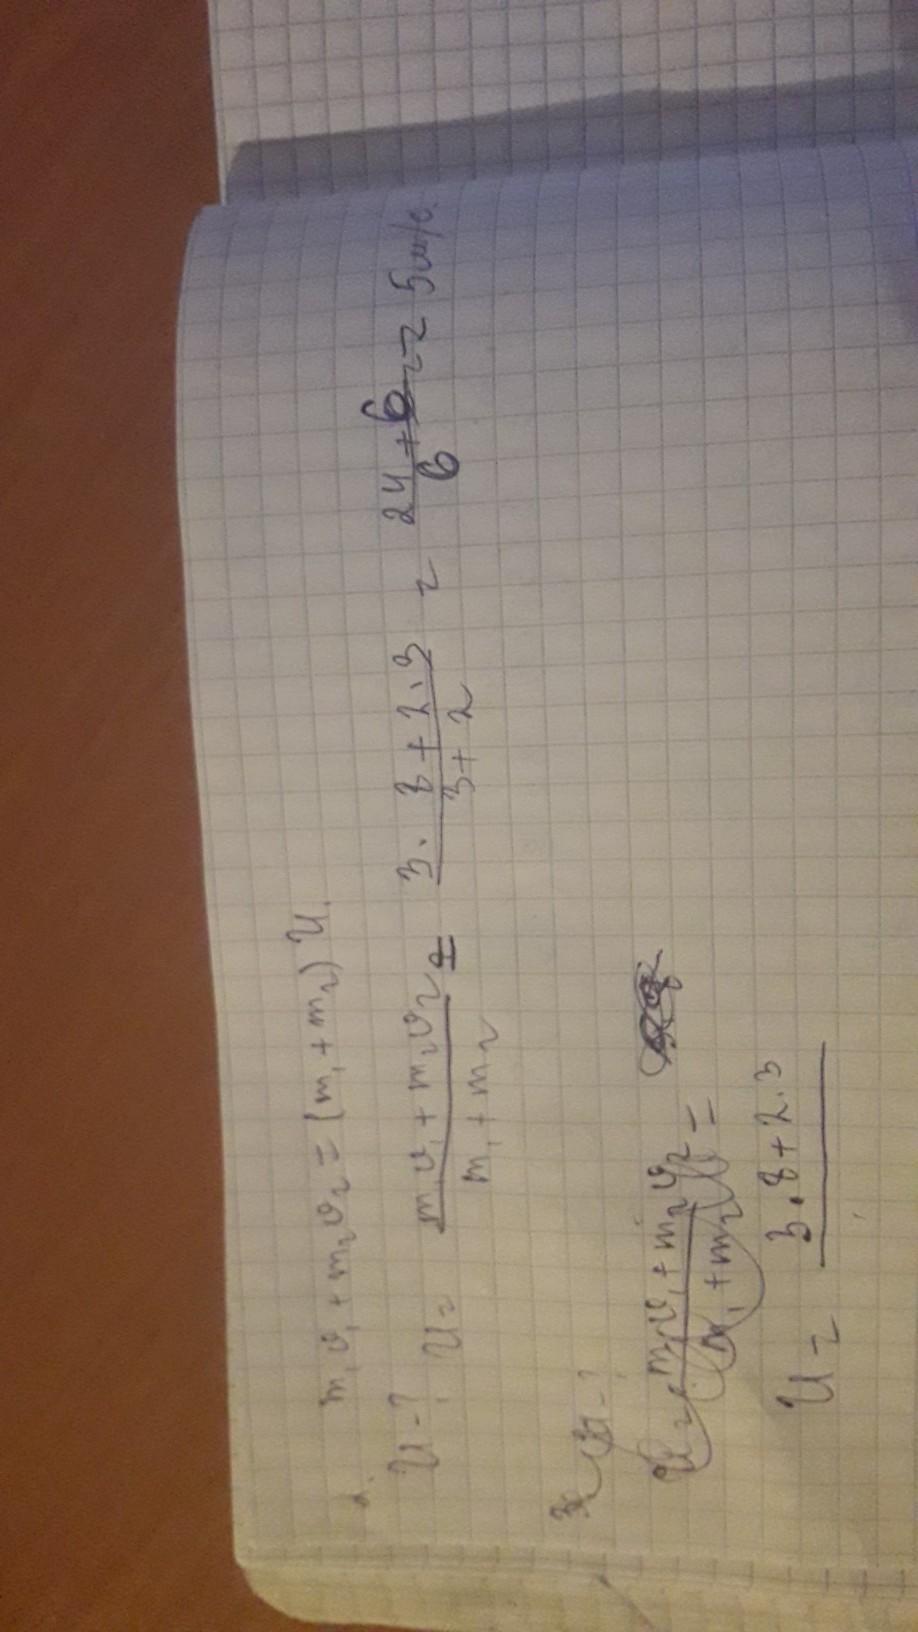 2.
m₁υ₁ + m₂υ₂ = (m₁ + m₂) U.
U - ? U = (m₁υ₁ + m₂υ₂)/(m₁ + m₂) = (3 · 8 + 2 · 3)/(3 + 2) = (24 + 6)/6 = 5 м/с.
U = (m₁υ₁ + m₂υ₂)/(m₁ + m₂) =
U = 3 · 8 + 2 · 3